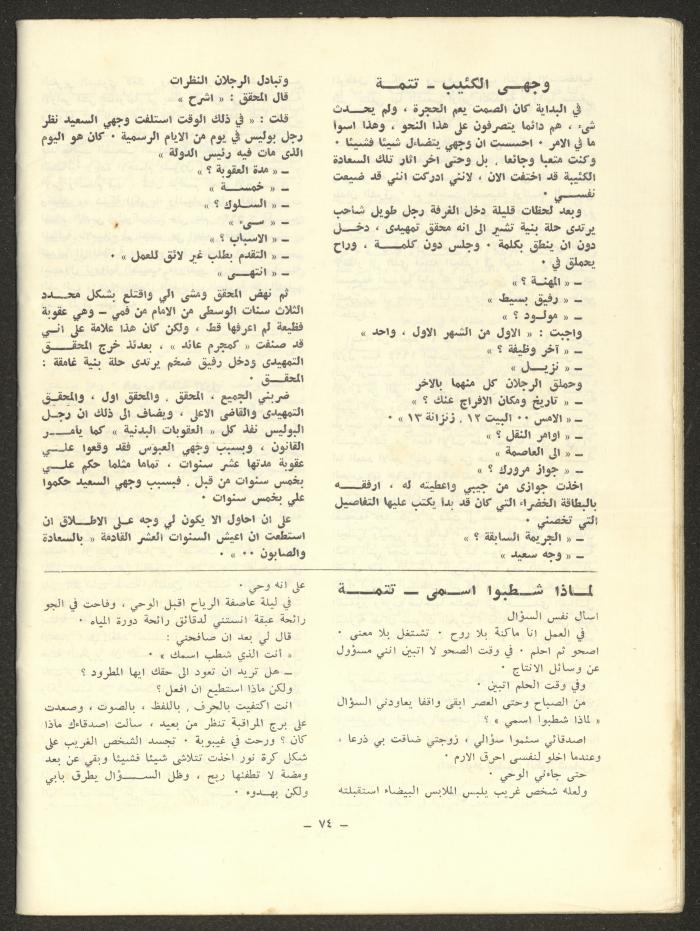 وجهـى الكئيب ـ تتمـة
في البداية كان الصمت يعم الحجرة ، ولم يحــدث
شىء ، هم دائما يتصرفون على هذا النحو ، وهذا اسوأ
ما في الامر ٠ احسست ان وجهي يتضاءل شيئا فشيئا ٠
وكنت متعبا وجائعا ، بل وحتى اخر اثار تلك السعادة
الكئيبة قد اختفت الان ، لانني ادركت انني قد ضيعت
نفســي ٠
وبعد لحظات قليلة دخل الغرفة رجل طويل شاحب
يرتدى حلة بنية تشير الى انه محقق تمهيدى ، دخــل
دون ان ينطق بكلمة ٠ وجلس دون كلمـــة ، وراح
يحملق في ٠
ـ « المهنة ؟ »
ـ « رفيق بسيط »
ـ « مولـود ؟ »
واجبت : « الاول من الشهر الاول ، واحد »
ـ « آخر وظيفة ؟ »
ـ « نزيــل »
وحملق الرجلان كل منهما بالاخر
ـ « تاريخ ومكان الافراج عنك ؟ »
ـ « الامس ٠٠ البيت ١٢ ، زنزانة ١٣ » ٠
ـ « اوامر النقل ؟ »
ـ « الى العاصمة »
ـ « جواز مرورك ؟ »
اخذت جوازى من جيبي واعطيته له ، ارفقـــه
بالبطاقة الخضراء التي كان قد بدا يكتب عليها التفاصيل
التي تخصني ٠
ـ « الجريمة السابقة ؟ »
ـ « وجه سعيد »
وتبادل الرجلان النظرات
قال المحقق : « اشرح »
قلت : « في ذلك الوقت استلفت وجهي السعيد نظر
رجل بوليس في يوم من الايام الرسمية ٠ كان هو اليوم
الذى مات فيه رئيس الدولة »
ـ « مدة العقوبة ؟ »
ـ « خمســـة »
ـ « الســلوك ؟ »
ـ « سىء »
ـ « الاسباب ؟ »
ـ « التقدم بطلب غير لائق للعمل » ٠
ـ « انتهــى »
ثم نهض المحقق ومشى الي واقتلع بشكل محــدد
الثلاث سنات الوسطى من الامام من فمي ـ وهي عقوبة
فظيعة لم اعرفها قط ، ولكن كان هذا علامة على انــي
قد صنفت « كمجرم عائد » ، بعدئذ خرج المحقـــق
التمهيدى ودخل رفيق ضخم يرتدى حلة بنية غامقة :
المحقــق ٠
ضربني الجميع ، المحقق ، والمحقق اول ، والمحقـق
التمهيدى والقاضي الاعلى ، ويضاف الى ذلك ان رجـل
البوليس نفذ كل « العقوبات البدنية » كما يامـــر
القانون ، وبسبب وجهي العبوس فقد وقعوا علـــي
عقوبة مدتها عشر سنوات ، تماما مثلما حكم علــي
بخمس سنوات من قبل ، فبسبب وجهي السعيد حكموا
علي بخمس سنوات ٠
على ان احاول الا يكون لي وجه على الاطــلاق ان
استطعت ان اعيش السنوات العشر القادمة « بالسعادة
والصابون ٠٠ » ٠
لمـاذا شـطبوا اسـمى ـ تتمـــة
اسال نفس السؤال
في العمل انا ماكنة بلا روح ٠ تشتغل بلا معنى ٠
اصحو ثم احلم ٠ في وقت الصحو لا اتبين انني مسؤول
عن وسائل الانتاج ٠
وفي وقت الحلم اتبين ٠
من الصباح وحتى العصر ابقى واقفا يعاودني السؤال
« لماذا شطبوا اسمي » ؟
اصدقائي سئموا سؤالي ، زوجتي ضاقت بي ذرعا ،
وعندما اخلو لنفسى احرق الارم ٠
حتى جاءني الوحي ٠
ولعله شخص غريب يلبس الملابس البيضاء استقبلته
على انه وحي ٠
في ليلة عاصفة الرياح اقبل الوحي ، وفاحت في الجو
رائحة عبقة انستني لدقائق رائحة دورة المياه ٠
قال لي بعد ان صافحني :
« أنت الذي شطب اسمك » ٠
ـ هل تريد ان تعود الى حقك ايها المطرود ؟
ولكن ماذا استطيع ان افعل ؟
انت اكتفيت بالحرف ، باللفظ ، بالصوت ، وصعدت
على برج المراقبة تنظر من بعيد ، سألت اصدقاءك ماذا
كان ؟ ورحت في غيبوبة ٠ تجسد الشخص الغريب على
شكل كرة نور اخذت تتلاشى شيئا فشيئا وبقي عن بعد
ومضة لا تطفئها ريح ، وظل الســـؤال يطرق بابي
ولكن بهـدوء ٠
ـ ٧٤ ـ